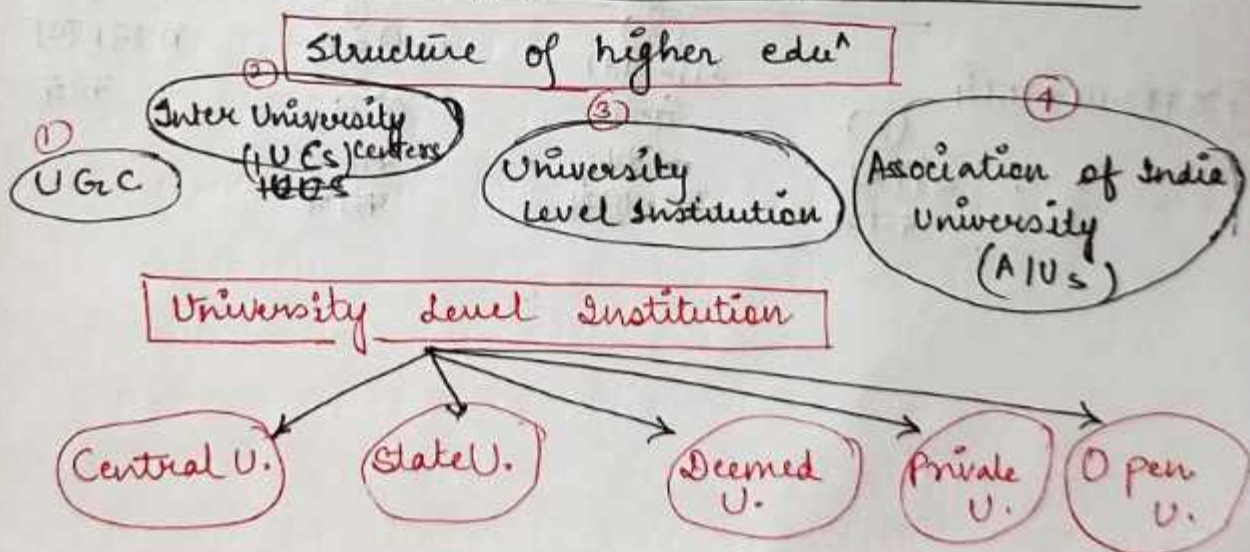 Structure of higher edu^
①
UGC
②
Inter University
(IUCs) Centers
③
University
Level Institution
④
Association of India
University
(AIUs)
University Level Institution
Central U.
State U.
Deemed
U.
Private
U.
Open
U.